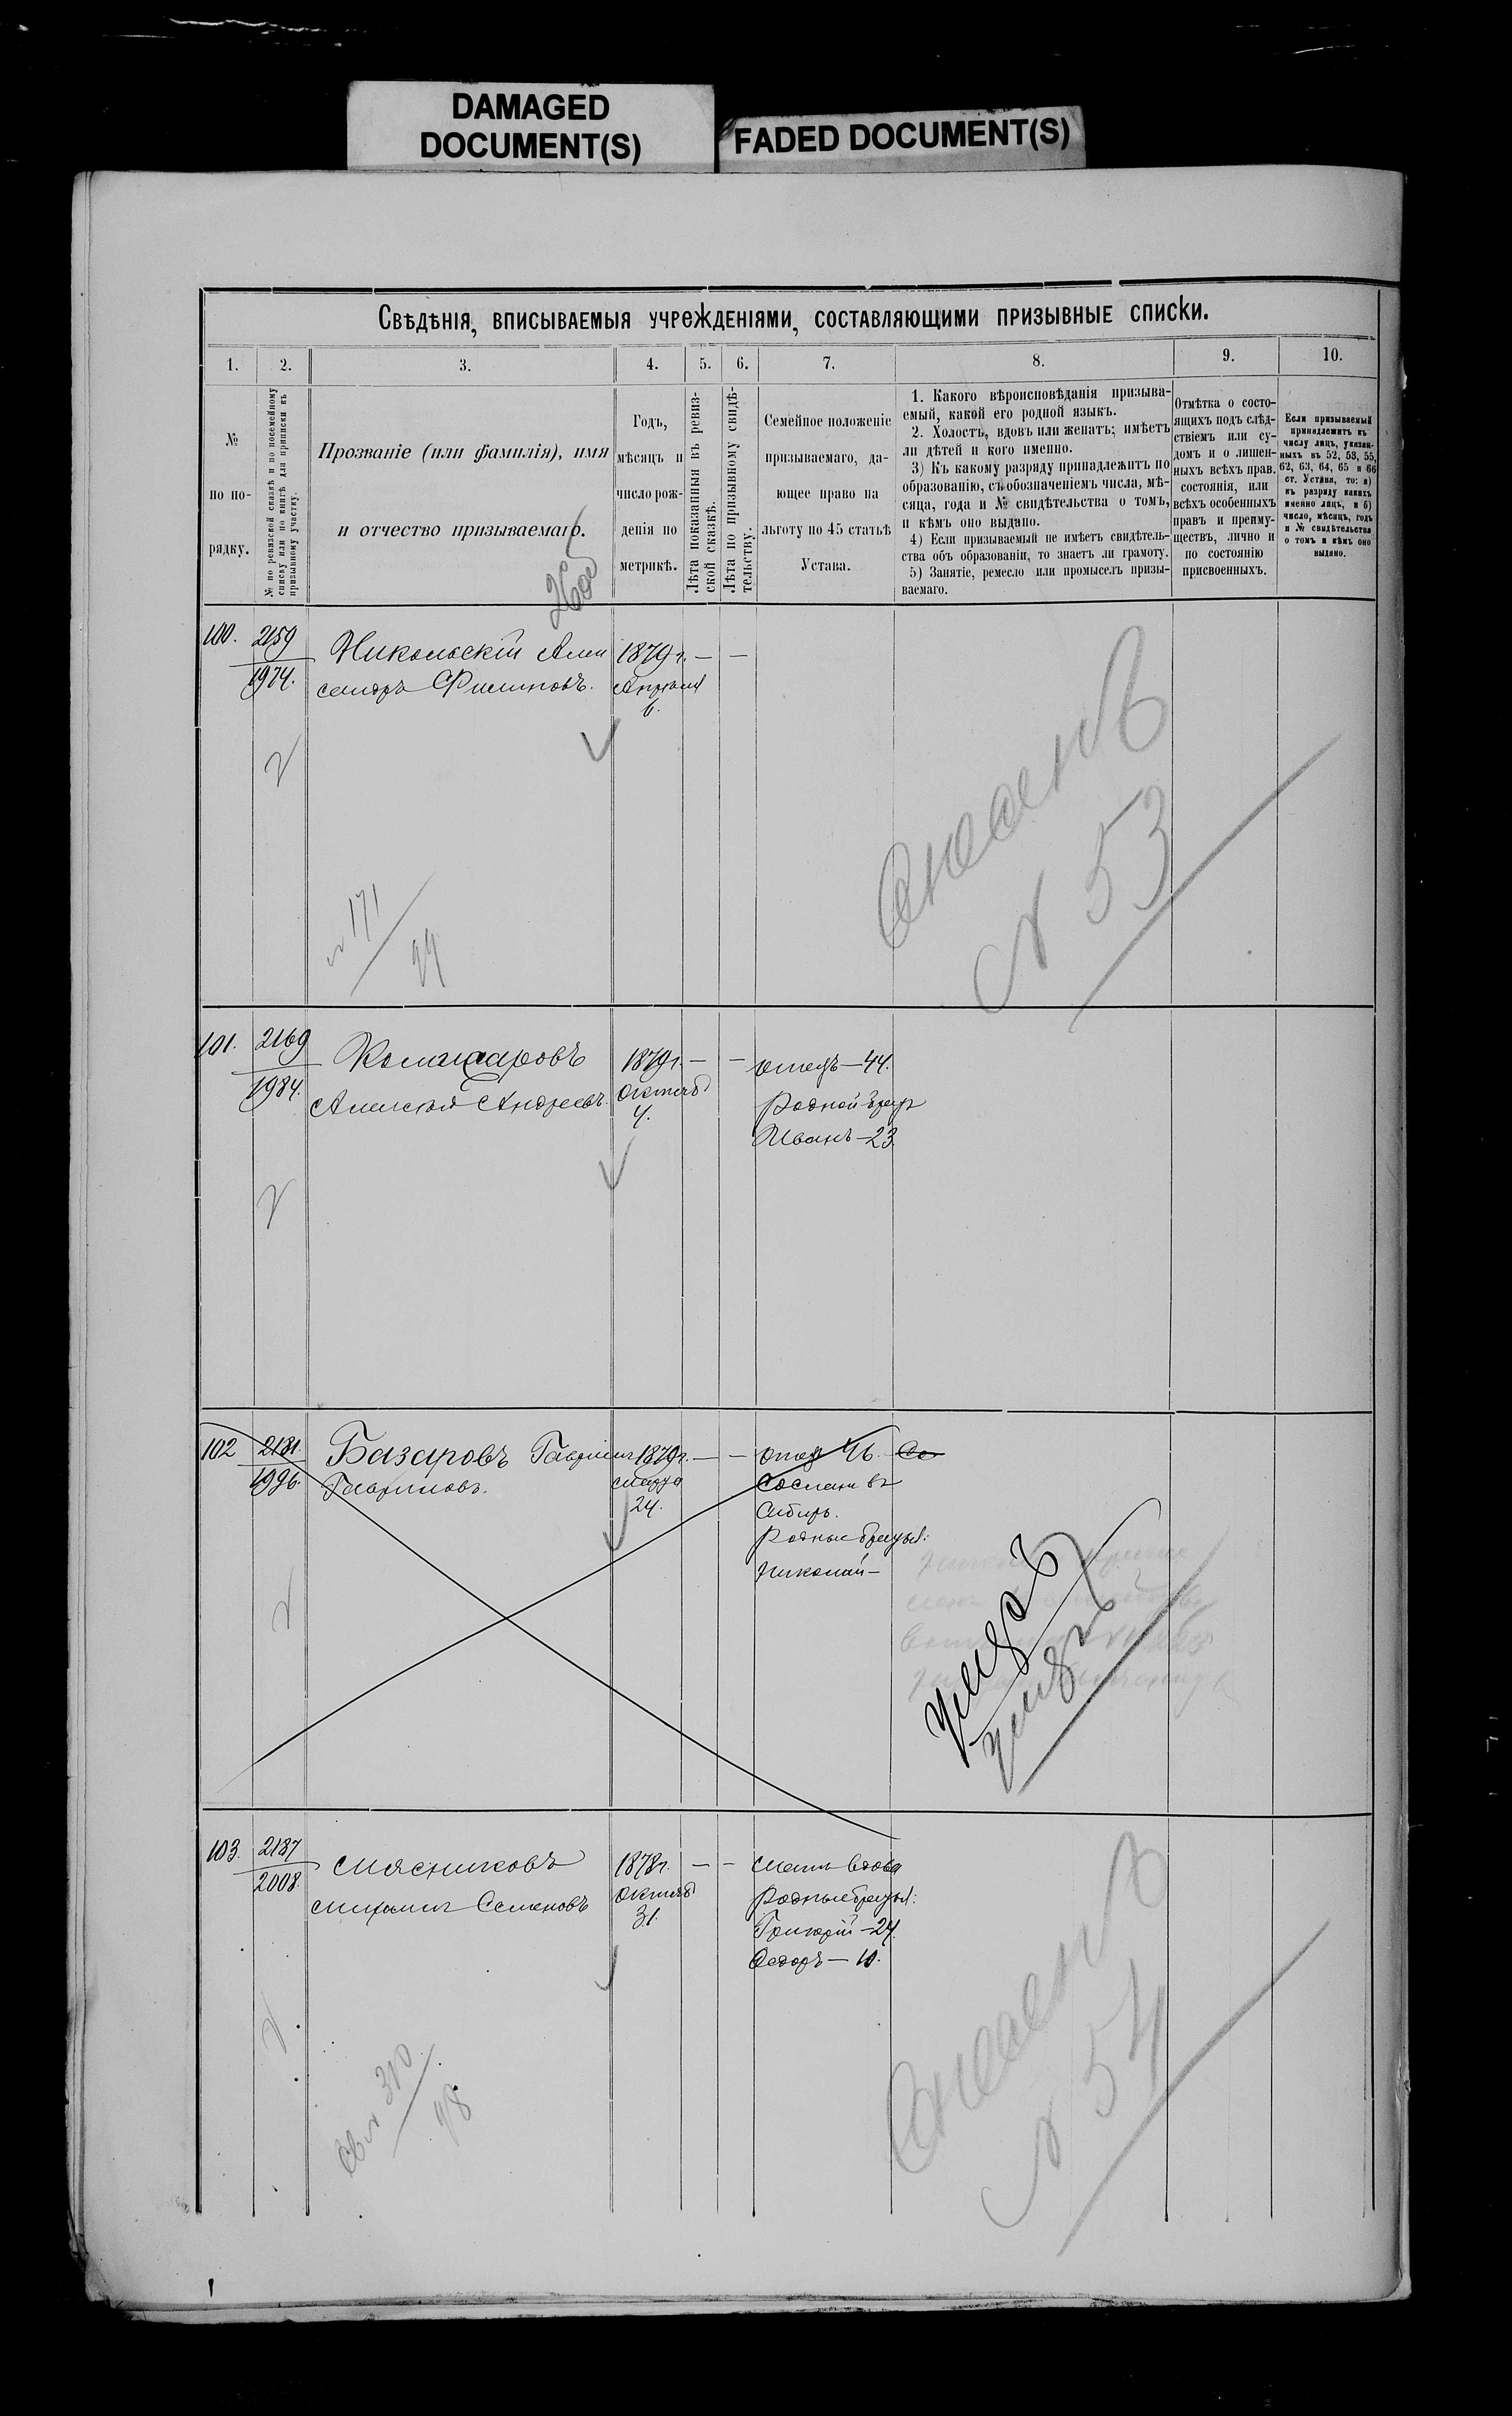 DAMAGED
DOCUMENT(S)
FADED DOCUMENT(S)
Свѣдѣнія, вписываемыя учрежденіями, составляющими призывные списки.
1. 2. 3. 4. 5. 6. 7. 8. 9. 10.
№
по по-
рядку.
№ по ревизской сказкѣ и по посемейному
списку или по книгѣ для приписки къ
призывному участку.
Прозваніе (или фамилія), имя
и отчество призываемаго.
Годъ,
мѣсяцъ и
число рож-
денія по
метрикѣ.
Лѣта показанныя въ ревиз-
ской сказкѣ.
Лѣта по призывному свидѣ-
тельству.
Семейное положеніе
призываемаго, да-
ющее право на
льготу по 45 статьѣ
Устава.
1. Какого вѣроисповѣданія призыва-
емый, какой его родной языкъ.
2. Холостъ, вдовъ или женатъ; имѣетъ
ли дѣтей и кого именно.
3) Къ какому разряду принадлежитъ по
образованію, съ обозначеніемъ числа, мѣ-
сяца, года и № свидѣтельства о томъ,
и кѣмъ оно выдано.
4) Если призываемый не имѣетъ свидѣтель-
ства объ образованіи, то знаетъ ли грамоту.
5) Занятіе, ремесло или промыселъ призы-
ваемаго.
Отмѣтка о состо-
ящихъ подъ слѣд-
ствіемъ или су-
домъ и о лишен-
ныхъ всѣхъ прав.
состоянія, или
всѣхъ особенныхъ
правъ и преиму-
ществъ, лично и
по состоянію
присвоенныхъ.
Если призываемый
принадлежитъ къ
числу лицъ, указан-
ныхъ въ 52, 53, 55,
62, 63, 64, 65 и 66
ст. Устава, то: а)
къ разряду какихъ
именно лицъ, и б)
число, мѣсяцъ, годъ
и № свидѣтельства
о томъ и кѣмъ оно
выдано.
100. 2159
1974.
Никольскій Алек
сандръ Филиповъ.
1879 г. — —
Апрѣля
6.
№ 171
99
№ 53
101. 2169
1984.
Алексѣй Андреевъ.
1879 г. — —
Октяб
4.
отецъ — 44.
Родной брат
Иванъ — 23.
102 2181.
1996.
Базаровъ Гавріил
Гавриловъ.
1879 г. — —
Марта
24.
отец 46. Со
Сослан въ
Сибирь.
Родные братья:
Николай —
Умеръ
умеръ
103. 2187
2008.
Мясниковъ
Михаил Семеновъ
1878 г. — —
Октяб
31.
Мать вдова
Родные братья:
Григорій — 24.
Федоръ — 10.
св № 310
98
№ 54